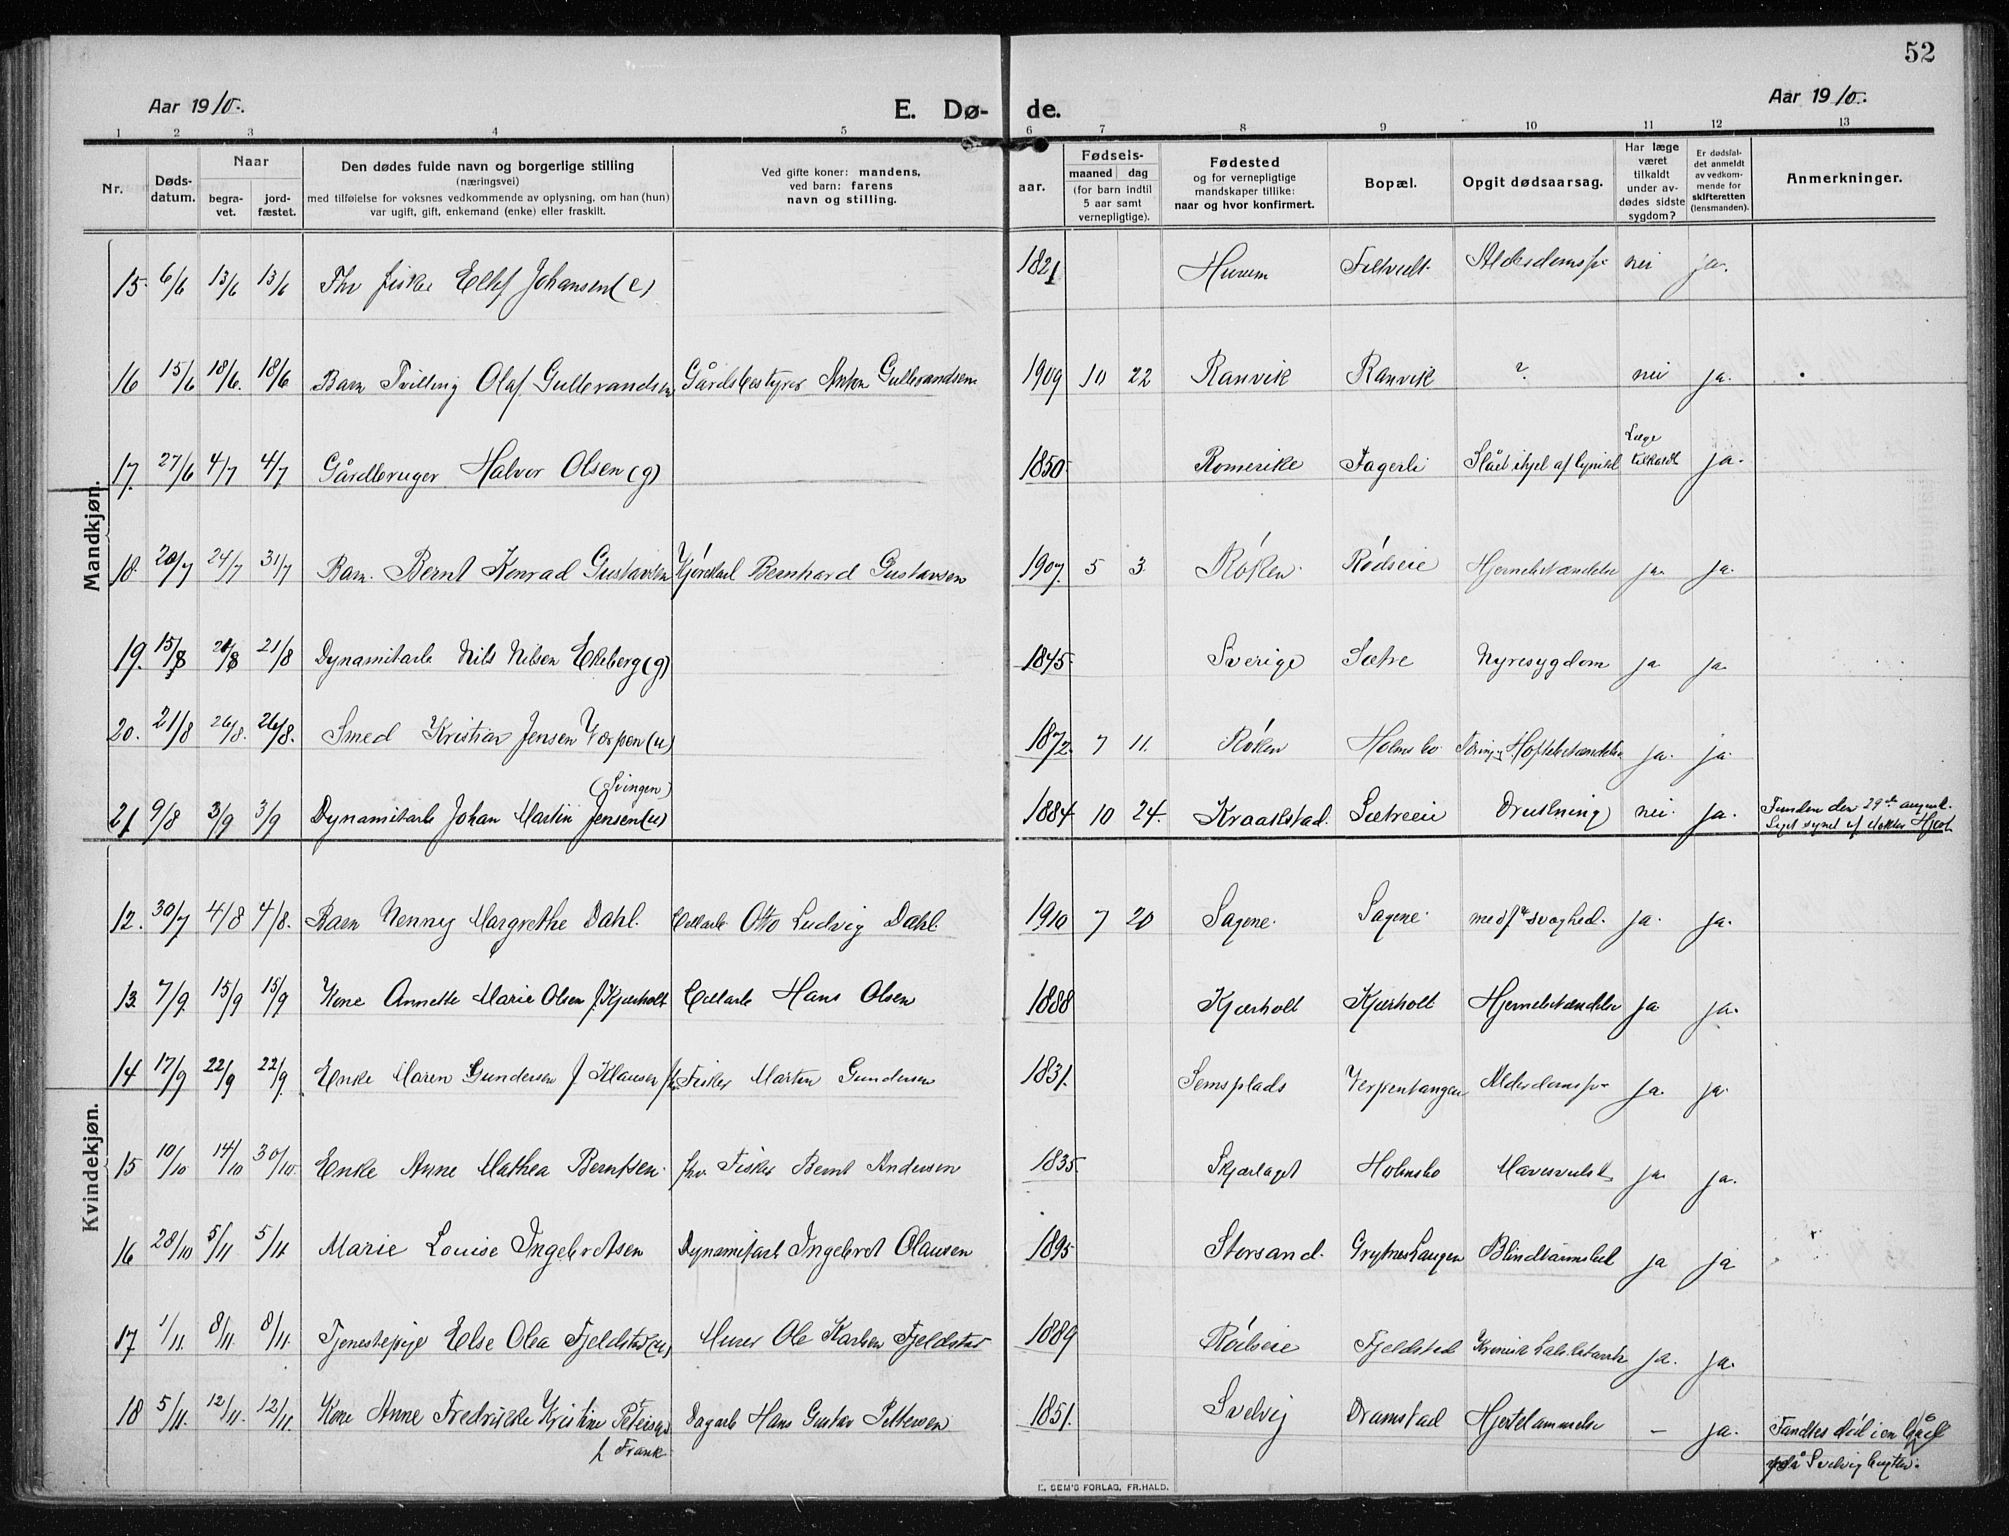 52
Aar 1910. E. Dø- de. Aar 1910.
1 2 3 4 5 6 7 8 9 10 11 12 13
Nr.
Døds-
datum.
Naar
begra-
vet.
jord-
fæstet.
Den dødes fulde navn og borgerlige stilling
(næringsvei)
med tilføielse for voksnes vedkommende av oplysning, om han (hun)
var ugift, gift, enkemand (enke) eller fraskilt.
Ved gifte koner: mandens,
ved barn: farens
navn og stilling.
aar.
Fødsels-
maaned dag
(for barn indtil
5 aar samt
vernepligtige).
Fødested
og for vernepligtige
mandskaper tillike:
naar og hvor konfirmert.
Bopæl.
Opgit dødsaarsag.
Har læge
været
tilkaldt
under av-
dødes sidste
sygdom?
Er dødsfal-
det anmeldt
av vedkom-
mende for
skifteretten
(lensmanden).
Anmerkninger.
Mandkjøn.
15. 6/6 13/6 13/6 Fhv fisker Ellef Johansen (e) 1821 Hurum Filtvedt Alderdomssv nei ja.
16 15/6 18/6. 18/6 Barn Tvilling Olaf Gulbrandsen Gårdsbestyrer Anton Gulbrandsen 1909 10 22 Ranvik Ranvik ? nei ja.
17. 27/6 4/7 4/7 Gårdbruger Halvor Olsen (g) 1850. Romerike Fagerli Slået ihjel af lynild Læge tilkaldt ja.
18. 20/7 24/7 31/7 Barn. Bernt Konrad Gustavsen Kjørekarl Bernhard Gustavsen 1907. 5 3. Røken. Rødseie Hjernebetændelse ja. ja.
19. 15/8 21/8 21/8 Dynamitarb Nils Nilsen Ekeberg (g) 1845. Sverige Sætre Nyresygdom ja ja.
20. 21/8 26/8. 26/8. Smed Kristian Jensen Verpen (u) 1872. 7 11. Røken Holmsbo Hoftebetændelse ja. ja.
(Svingen)
21 9/8 3/9 3/9 Dynamitarb Johan Martin Jensen (u) 1884. 10 24. Kraakstad. Sætreeie Drukning nei. ja. Funden den 29de august.
Liget synet af doktor Hjort
Kvindekjøn.
12. 30/7 4/8 4/8. Barn Nenny Margrethe Dahl. Cellarb Otto Ludvig Dahl 1910 7 20 Sagene. Sagene. medf. svaghed. ja. ja.
13. 7/9. 15/9 15/9 Kone Annette Marie Olsen f. Kjærholt Cellarb Hans Olsen 1888 Kjærholt Kjærholt Hjernebetændelse ja ja.
14 17/9 22/9 22/9. Enke Maren Gundersen f Klausen fhv Fisker Martin Gundersen 1831. Semsplads Verpentangen Alderdomssv ja. ja.
15 10/10 14/10 30/10. Enke Anne Mathea Berntsen. fhv. Fisker Bernt Andersen 1835. Skjærlaget Holmsbo Mavesvulst ja. ja.
16 28/10 5/11 5/11 Marie Louise Ingebretsen Dynamitarb Ingebret Olausen 1895. Storsand. Grytnestangen Blindtarmsbet ja ja
17 1/11. 8/11. 8/11 Tjenestepige Else Olea Fjeldstad (u) Murer Ole Karlsen Fjeldstad 1889 Rødseie Fjeldstad Kronisk ja. ja.
18 5/11. 12/11. 12/11. Kone Anne Fredrikke Kristine Petersen Dagarb Hans Gustav Pettersen 1851. Svelvig Dramstad Hjertelammelse – ja. Fandtes død i en båd
f. Frank på Svelvigbugten.
E. SEM'S FORLAG, FR.HALD.